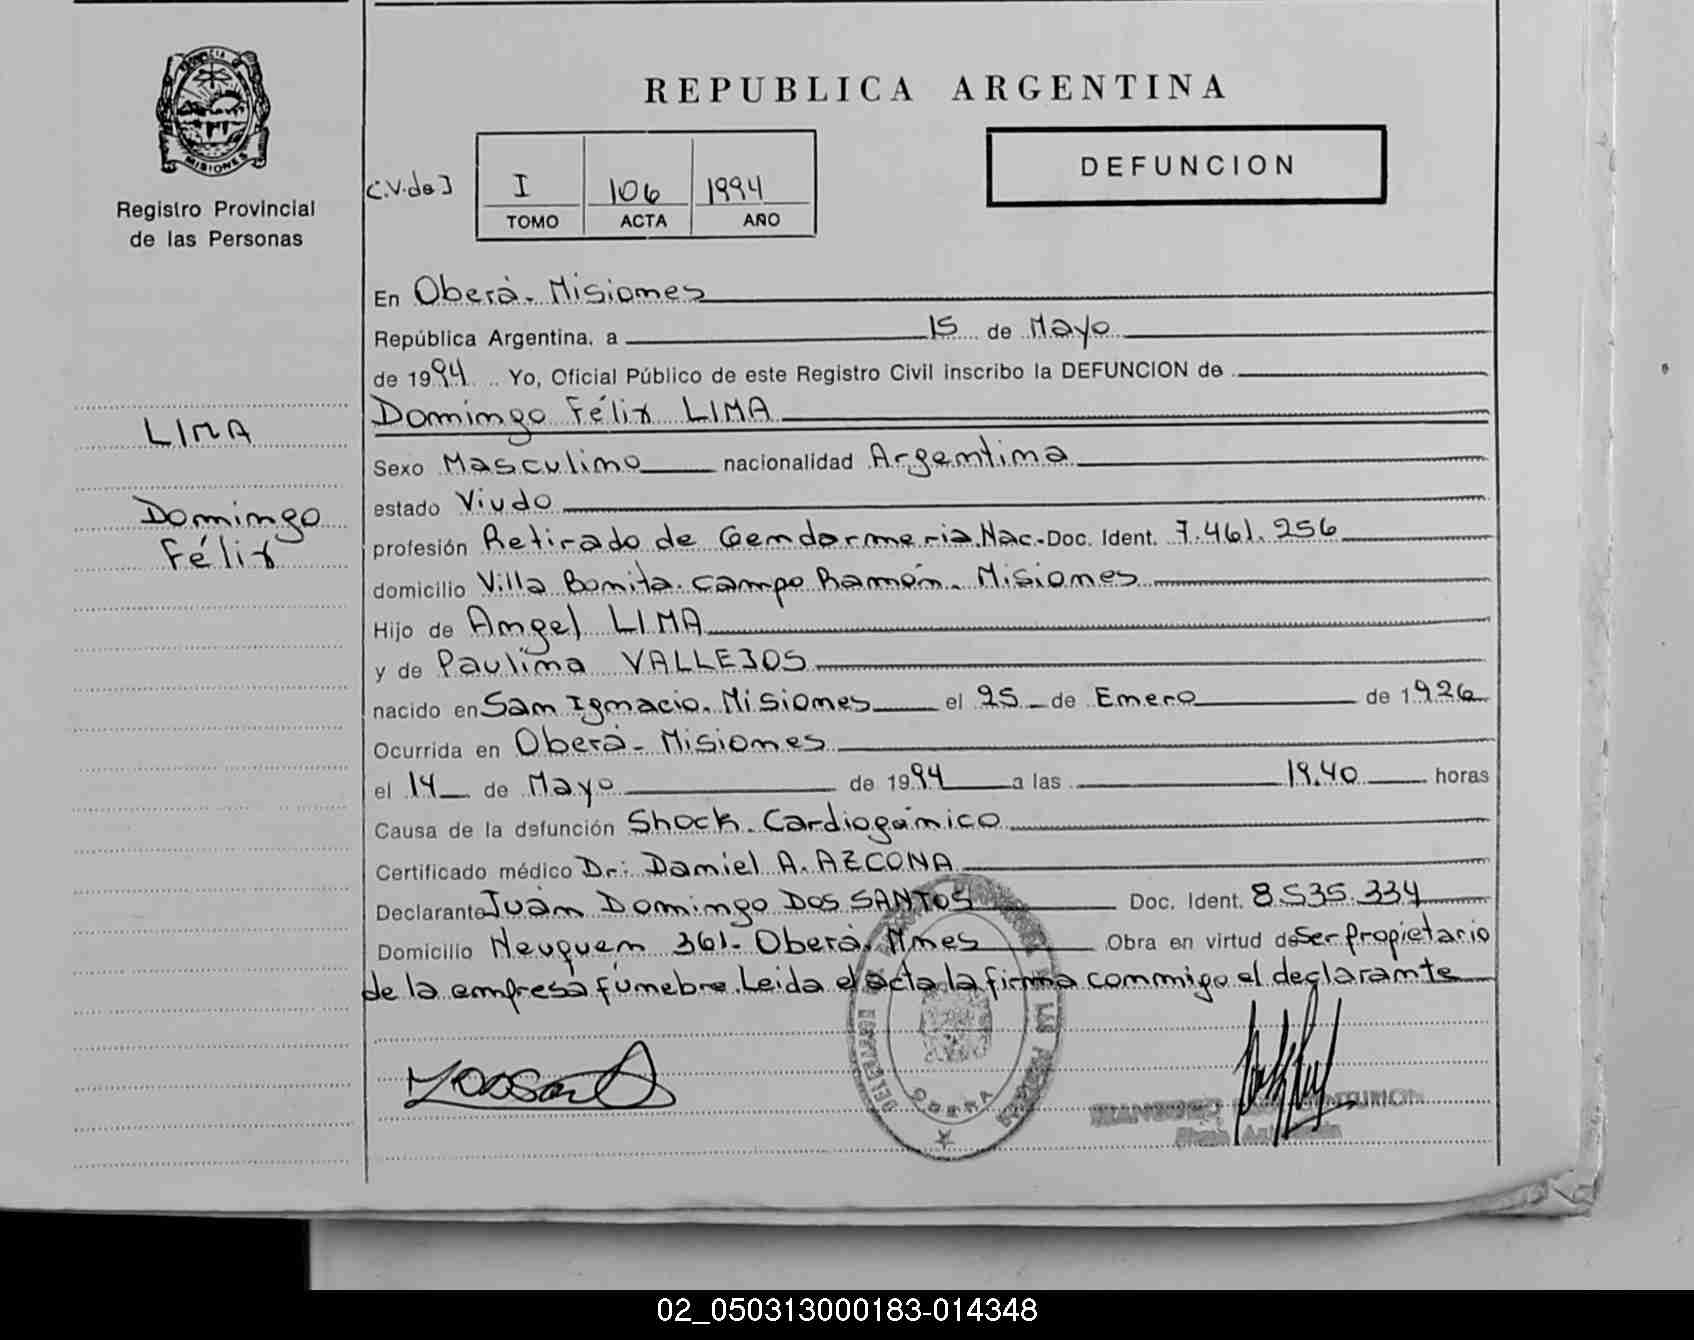 PROVINCIA
MISIONES
Registro Provincial
de las Personas
REPUBLICA ARGENTINA
DEFUNCION
I 106 1994
TOMO ACTA AÑO
En Oberá- Misiones
República Argentina, a 15 de Mayo
de 1994 Yo, Oficial Público de este Registro Civil inscribo la DEFUNCION de
Domingo Félix LIMA
Sexo Masculino nacionalidad Argentina
estado Viudo
profesión Retirado de Gendarmeria Nac.- Doc. Ident. 7.461.256
domicilio Villa Bonita- Campo Ramón- Misiones
Hijo de Angel LIMA
y de Paulina VALLEJOS
nacido en San Ignacio. Misiones el 25 de Enero de 1926
Ocurrida en Oberá- Misiones
el 14 de Mayo de 1994 a las 19.40 horas
Causa de la defunción Shock Cardiogénico
Certificado médico Dr: Daniel A. AZCONA
Declarante Juán Domingo DOS SANTOS Doc. Ident. 8.535.334
Domicilio Neuquen 361- Oberá. Mnes Obra en virtud de Ser propietario
de la empresa fúnebre. Leida el acta la firma conmigo el declarante
LIMA
Domingo
Félix
OBERA
02_050313000183-014348